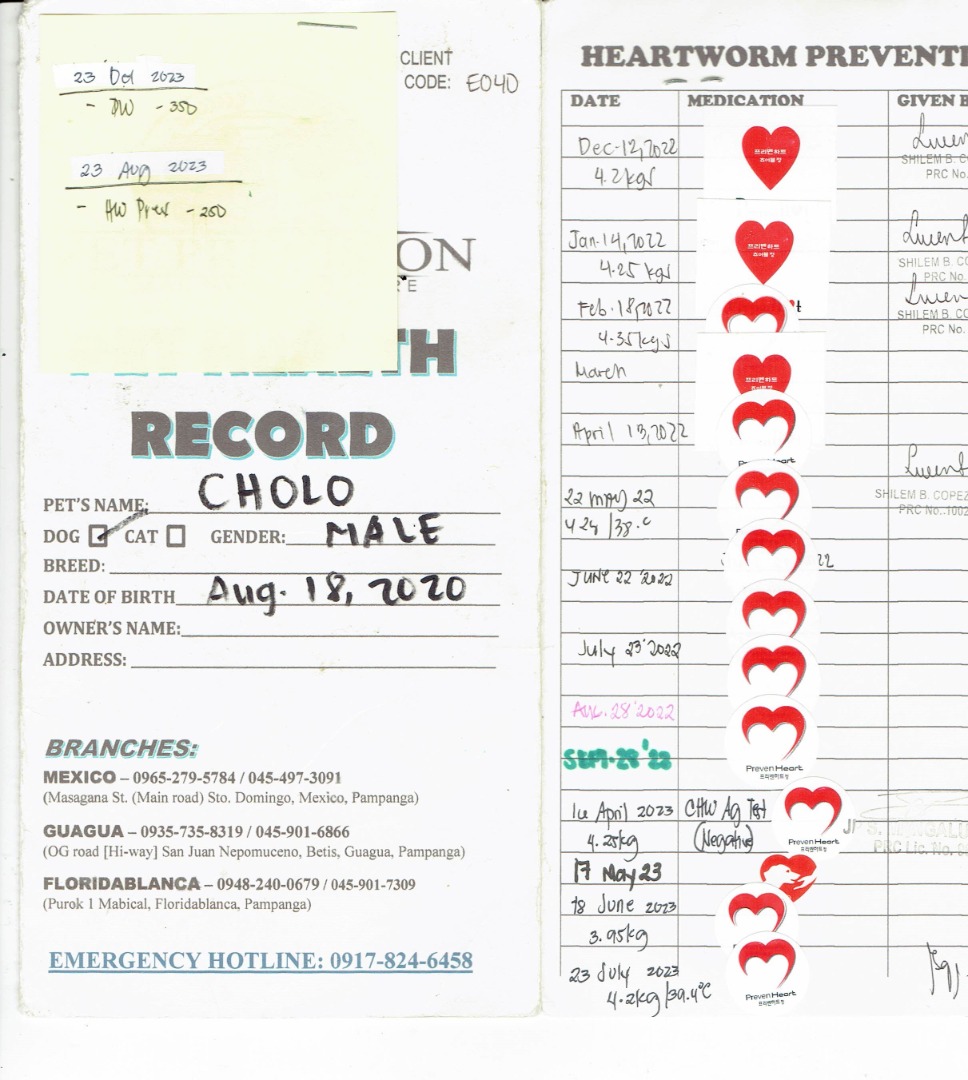 23 Oct 2023
- DW - 350
23 Aug 2023
- HW Prev - 250
CLIENT
CODE: E040
ON
RE
TH
RECORD
PET'S NAME: CHOLO
DOG ☑ CAT ☐ GENDER: MALE
BREED:
DATE OF BIRTH Aug. 18, 2020
OWNER'S NAME:
ADDRESS:
BRANCHES:
MEXICO – 0965-279-5784 / 045-497-3091
(Masagana St. (Main road) Sto. Domingo, Mexico, Pampanga)
GUAGUA – 0935-735-8319 / 045-901-6866
(OG road [Hi-way] San Juan Nepomuceno, Betis, Guagua, Pampanga)
FLORIDABLANCA – 0948-240-0679 / 045-901-7309
(Purok 1 Mabical, Floridablanca, Pampanga)
EMERGENCY HOTLINE: 0917-824-6458
HEARTWORM PREVENTI
DATE MEDICATION GIVEN B
Dec-12,2022 프리벤하트
츄어블정
SHILEM B. CO
4.2kgs PRC No.
Jan-14,2022 프리벤하트
츄어블정
SHILEM B. CO
4.25 kgs PRC No.
Feb. 18,2022
SHILEM B. CO
4.35kgs PRC No.
March 프리벤하트
April 13,2022
22 MAY 22 SHILEM B. COPEZ
4.24 /38.c PRC No..1002
22
JUNE 22 '2022
July 23 '2022
AUG. 28 '2022
SEPT. 28 '22
PrevenHeart
프리벤하트정
14 April 2023 CHW Ag Test
4.25kg (Negative)
PrevenHeart
프리벤하트정
PRC Lic. No.
17 May 23
18 June 2023
3.95kg
23 July 2023
4.2kg/39.4°C
PrevenHeart
프리벤하트정